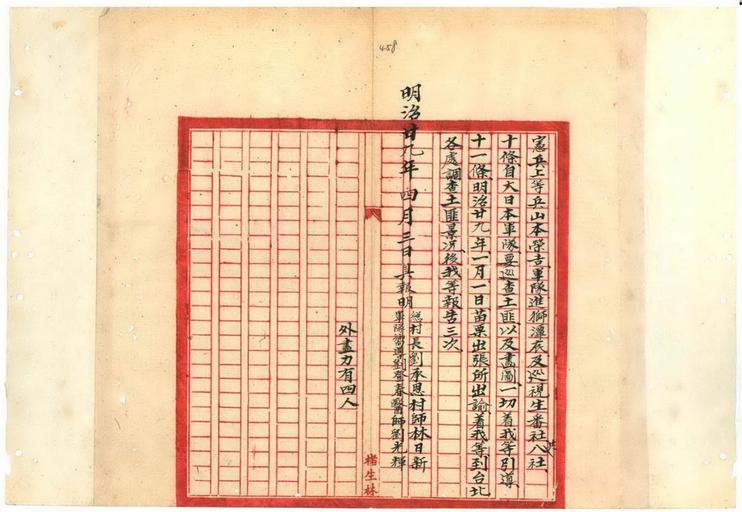 458
憲兵上等兵山本榮吉軍隊進獅潭底及巡視生番社共八社
十條自大日本軍隊要巡查土匪以及畫圖一切着我等引導
十一條明治廿九年一月一日苗栗出張所出諭着我等到台北
各處調查土匪景況後我等報告三次
明治廿九年四月三日具報明
總村長劉承恩村師林日新
軍隊嚮導劉登春醫師劉光輝
外盡力有四人